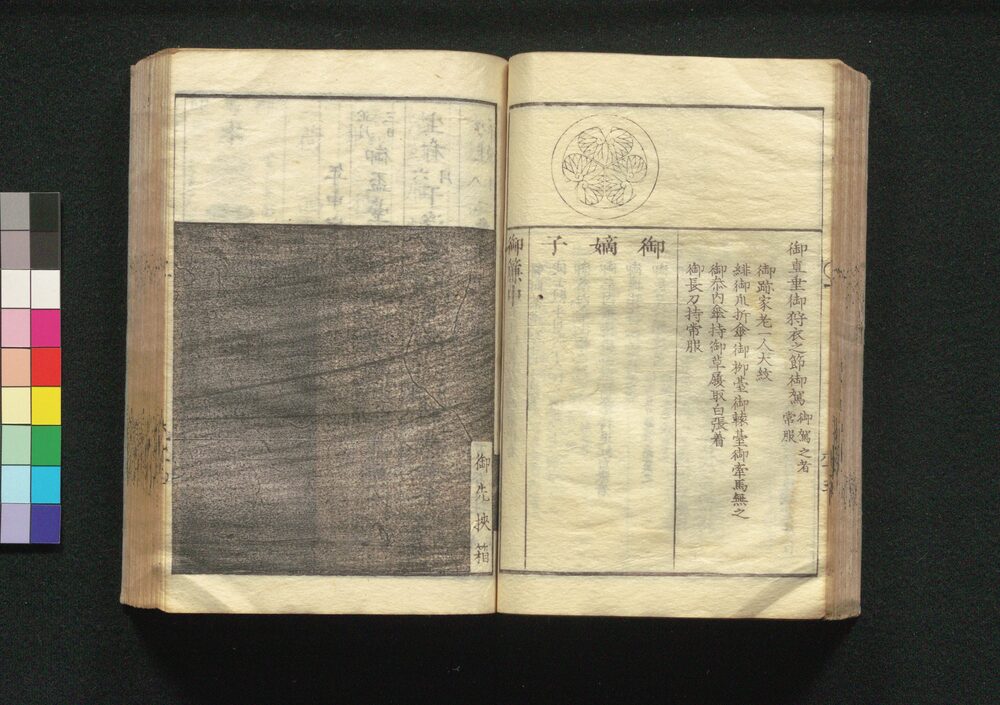 御直垂御狩衣之節御駕御駕之者
常服
御跡家老一人大紋
緋御爪折傘御柳臺御棘臺御牽馬無之
御参内傘持御草履取白張着
御長刀持常服
御嫡子
御簾中
御先挾箱